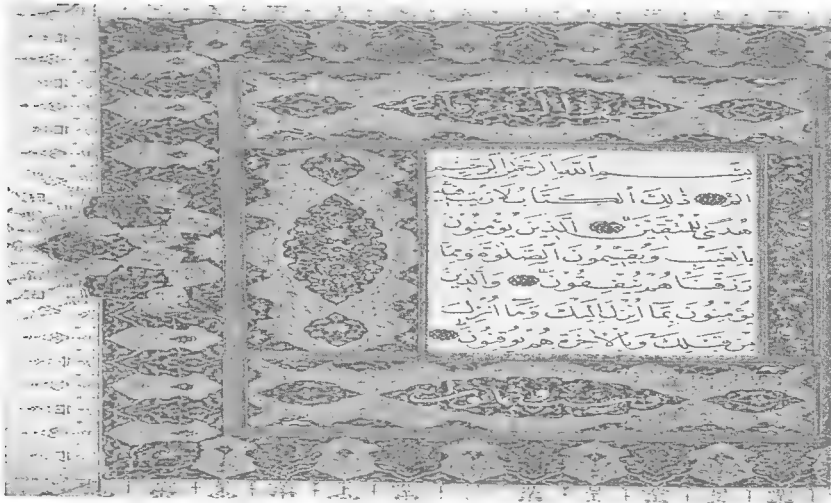 بِسْمِ اللَّهِ الرَّحْمَنِ الرَّحِيمِ
الم ذَلِكَ الْكِتَابُ لَا رَيْبَ فِيهِ
هُدًى لِلْمُتَّقِينَ الَّذِينَ يُؤْمِنُونَ
بِالْغَيْبِ وَيُقِيمُونَ الصَّلَوةَ وَمِمَّا
رَزَقْنَاهُمْ يُنْفِقُونَ وَالَّذِينَ
يُؤْمِنُونَ بِمَا أُنْزِلَ إِلَيْكَ وَمَا أُنْزِلَ
مِنْ قَبْلِكَ وَبِالْآخِرَةِ هُمْ يُوقِنُونَ